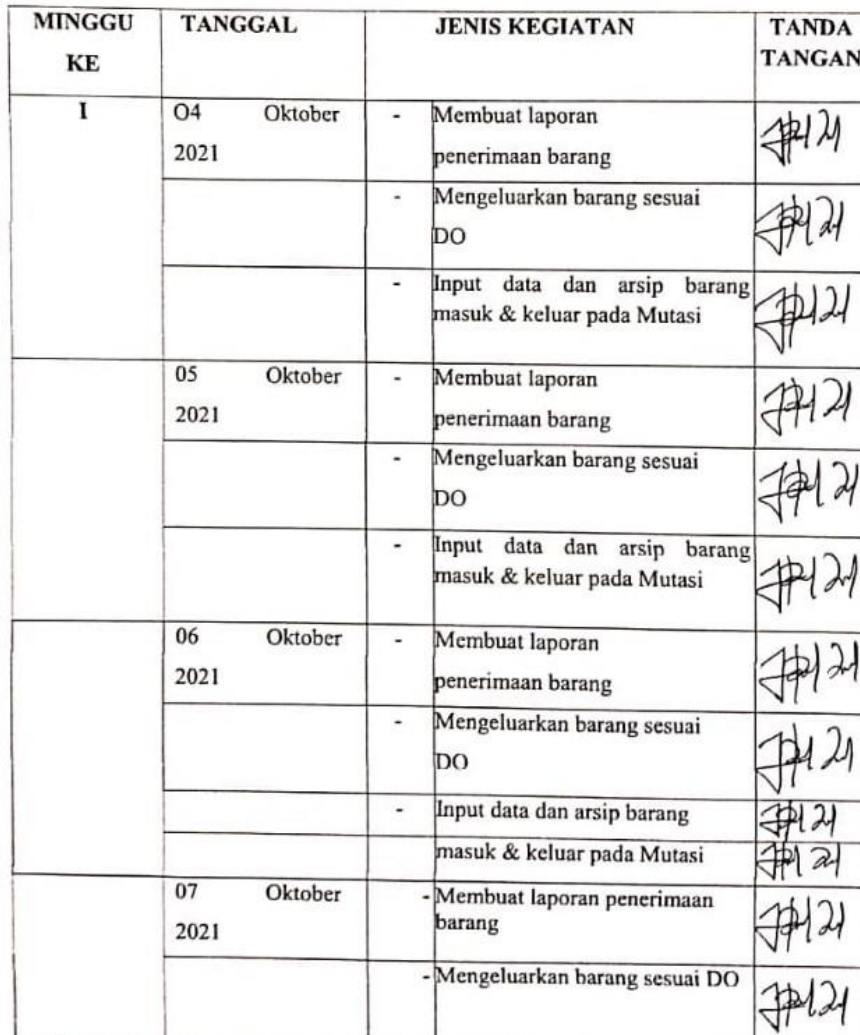 MINGGU KE
TANGGAL
JENIS KEGIATAN
TANDA TANGAN
I
O4 Oktober 2021
- Membuat laporan
penerimaan barang
- Mengeluarkan barang sesuai
DO
- Input data dan arsip barang
masuk & keluar pada Mutasi
05 Oktober 2021
- Membuat laporan
penerimaan barang
- Mengeluarkan barang sesuai
DO
- Input data dan arsip barang
masuk & keluar pada Mutasi
06 Oktober 2021
- Membuat laporan
penerimaan barang
- Mengeluarkan barang sesuai
DO
- Input data dan arsip barang
masuk & keluar pada Mutasi
07 Oktober 2021
- Membuat laporan penerimaan
barang
- Mengeluarkan barang sesuai DO